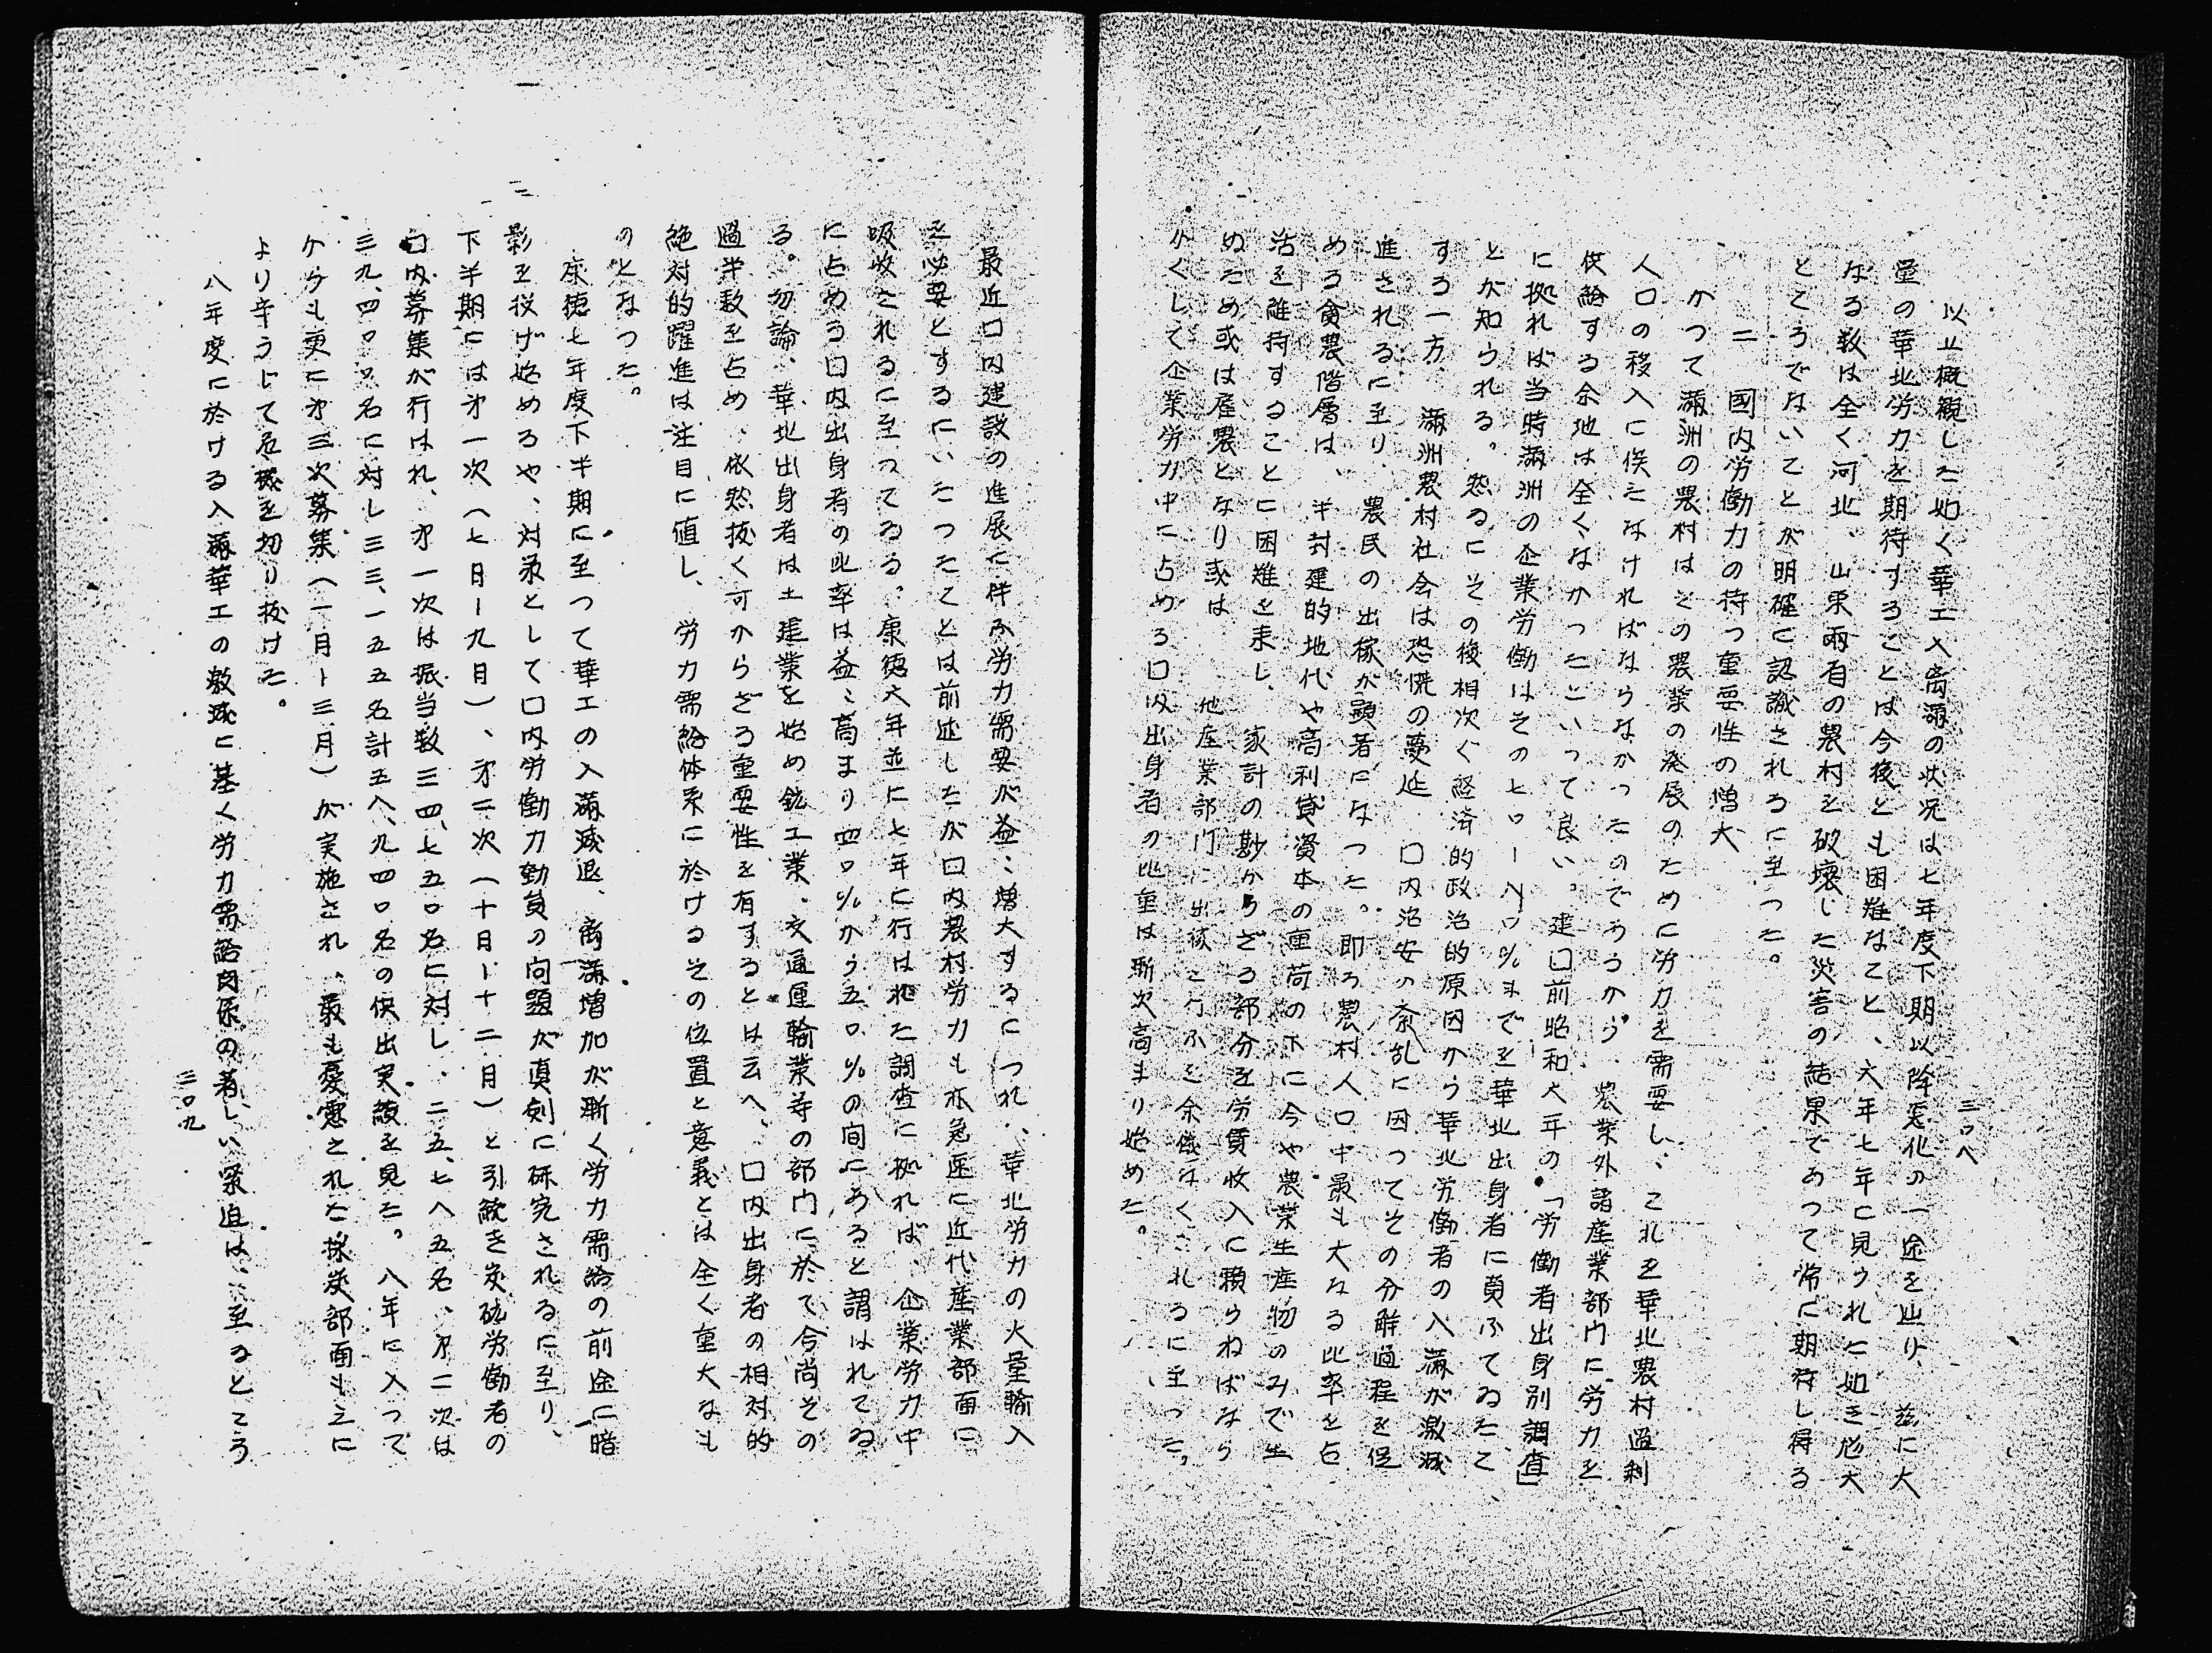 三〇八
以上概観した如く華工入離満の状況は七年度下期以降悪化の一途を辿り、茲に大
量の華北労力を期待することは今後とも困難なこと、六年七年に見られた如き尨大
なる数は全く河北、山東両省の農村を破壊した災害の結果であつて常に期待し得る
ところでないことが明確に認識されるに至つた。
二 國内労働力の持つ重要性の増大
かつて満洲の農村はその農業の発展のために労力を需要し、これを華北農村過剰
人口の移入に俟たなければならなかつたのであらうから、農業外諸産業部門に労力を
供給する余地は全くなかつたといつて良い。建囗前昭和六年の「労働者出身別調査」
に拠れば当時満洲の企業労働はその七〇ー八〇％までを華北出身者に負ふてゐたこ
とが知られる。然るにその後相次ぐ経済的政治的原因から華北労働者の入満が激減
する一方、満洲農村社会は恐慌の蔓延 囗内治安の紊乱に因つてその分解過程を促
進されるに至り、農民の出稼が顕著になつた。即ち農村人口中最も大なる比率を占
める貧農階層は、半封建的地代や高利貸資本の重荷の下に今や農業生産物のみで生
活を維持することに困難を来し、家計の尠からざる部分を労賃収入に頼らねばなら
ぬため或は雇農となり或は 他産業部門に出稼を行ふを余儀なくされるに至つた。
かくして企業労力中に占める囗内出身者の比重は漸次高まり始めた。
最近囗内建設の進展に伴ふ労力需要が益々増大するにつれ、華北労力の大量輸入
を必要とするにいたつたことは前述したが囗内農村労力も亦急速に近代産業部面に
吸收されるに至つてゐる。康徳六年並に七年に行はれた調査に拠れば、企業労力中
に占める囗内出身者の比率は益々高まり四〇％から五〇％の間にあると謂はれてゐ
る。勿論、華北出身者は土建業を始め鉱工業、交通運輸業等の部門に於て今尚その
過半数を占め、依然抜く可からざる重要性を有するとは云へ、囗内出身者の相対的
絶対的躍進は注目に値し、労力需給体系に於けるその位置と意義とは全く重大なも
のとなつた。
康徳七年度下半期に至つて華工の入満減退、離満増加が漸く労力需給の前途に暗
影を投げ始めるや、対策として囗内労働力動員の问題が真剣に研究されるに至り、
下半期には才一次（七月ー九月）、才二次（十月ー十二月）と引続き炭砿労働者の
囗内募集が行はれ、才一次は振当数三四、七五〇名に対し、二五、七八五名、才二次は
三九、四〇〇名に対し三三、一五五名計五八、九四〇名の供出実績を見た。八年に入つて
からも更に才三次募集（一月ー三月）が実施され、最も憂慮された採炭部面も之に
より辛うじて危機を切り抜けた。
八年度に於ける入満華工の激減に基く労力需給関係の著しい緊迫は、至るところ
三〇九